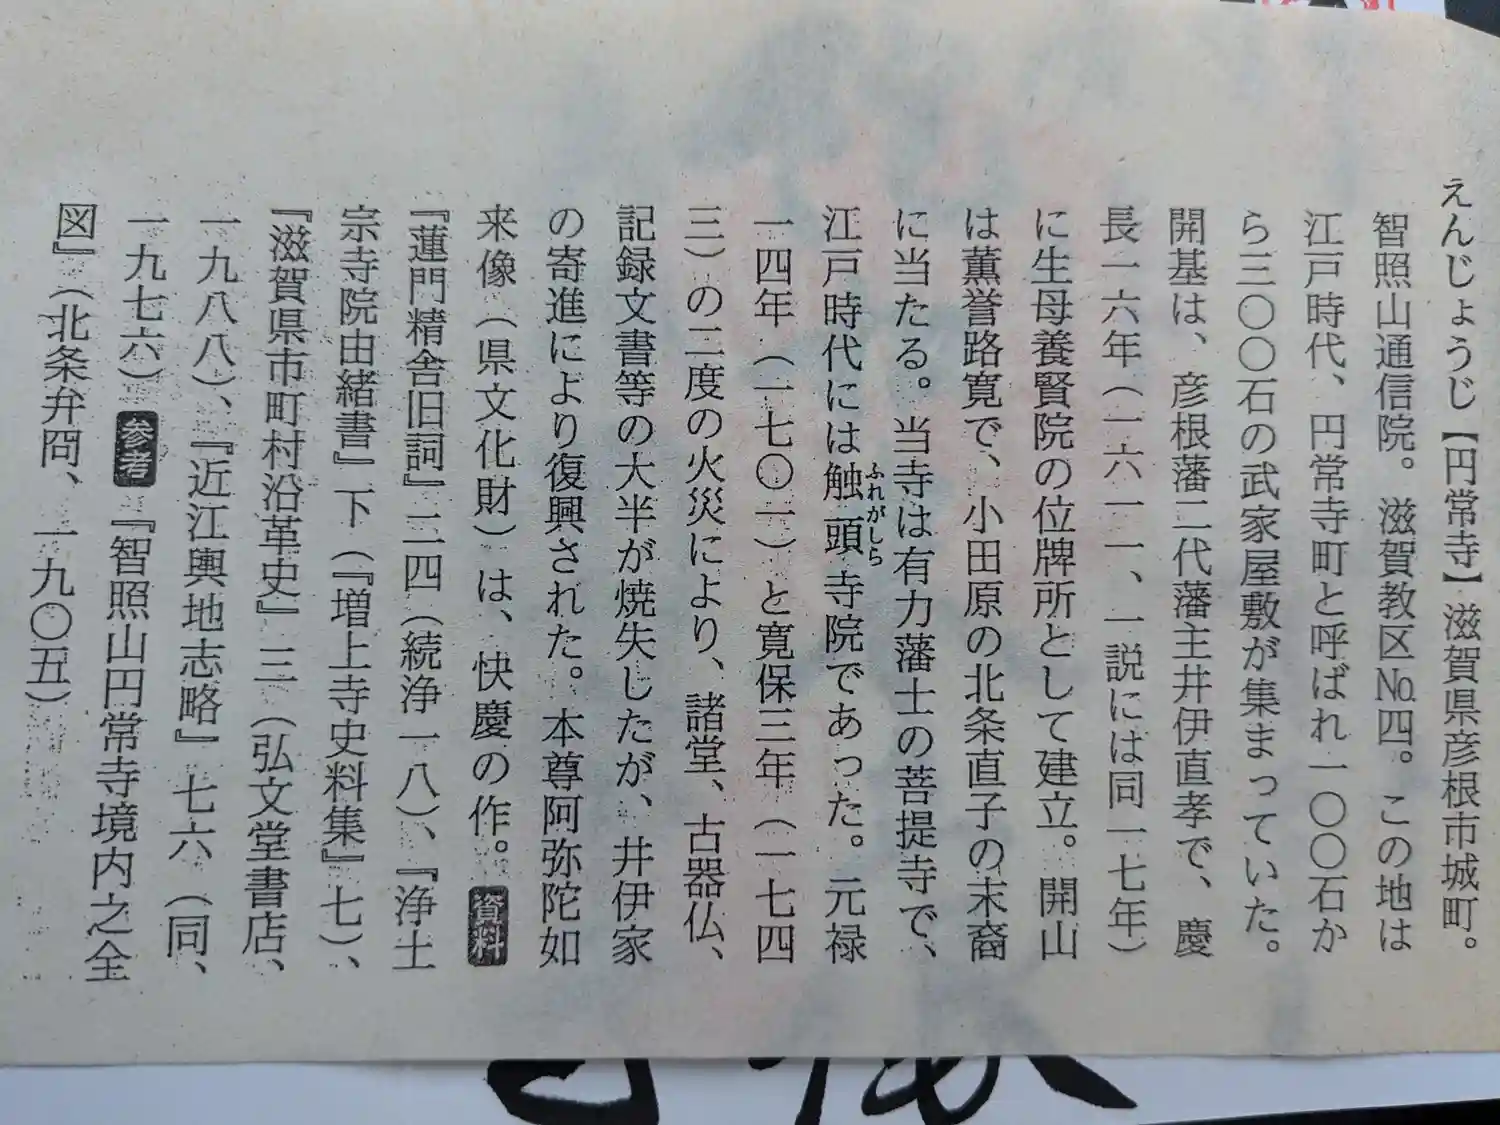 えんじょうじ【円常寺】滋賀県彦根市城町。
智照山通信院。滋賀教区№四。この地は
江戸時代、円常寺町と呼ばれ一〇〇石か
ら三〇〇石の武家屋敷が集まっていた。
開基は、彦根藩二代藩主井伊直孝で、慶
長一六年（一六一一、一説には同一七年）
に生母養賢院の位牌所として建立。開山
は薫誉路寛で、小田原の北条直子の末裔
に当たる。当寺は有力藩士の菩提寺で、
江戸時代には触頭寺院であった。元禄
ふれがしら
一四年（一七〇一）と寛保三年（一七四
三）の二度の火災により、諸堂、古器仏、
記録文書等の大半が焼失したが、井伊家
の寄進により復興された。本尊阿弥陀如
来像（県文化財）は、快慶の作。資料
『蓮門精舎旧詞』二四（続浄一八）、『浄土
宗寺院由緒書』下（『増上寺史料集』七）、
『滋賀県市町村沿革史』三（弘文堂書店、
一九八八）、『近江輿地志略』七六（同、
一九七六）参考『智照山円常寺境内之全
図』（北条弁冏、一九〇五）